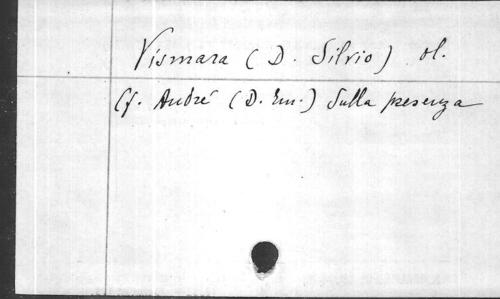 Vismara (D. Silvio) ol.
Cf. André (D. Em.) Sulla presenza